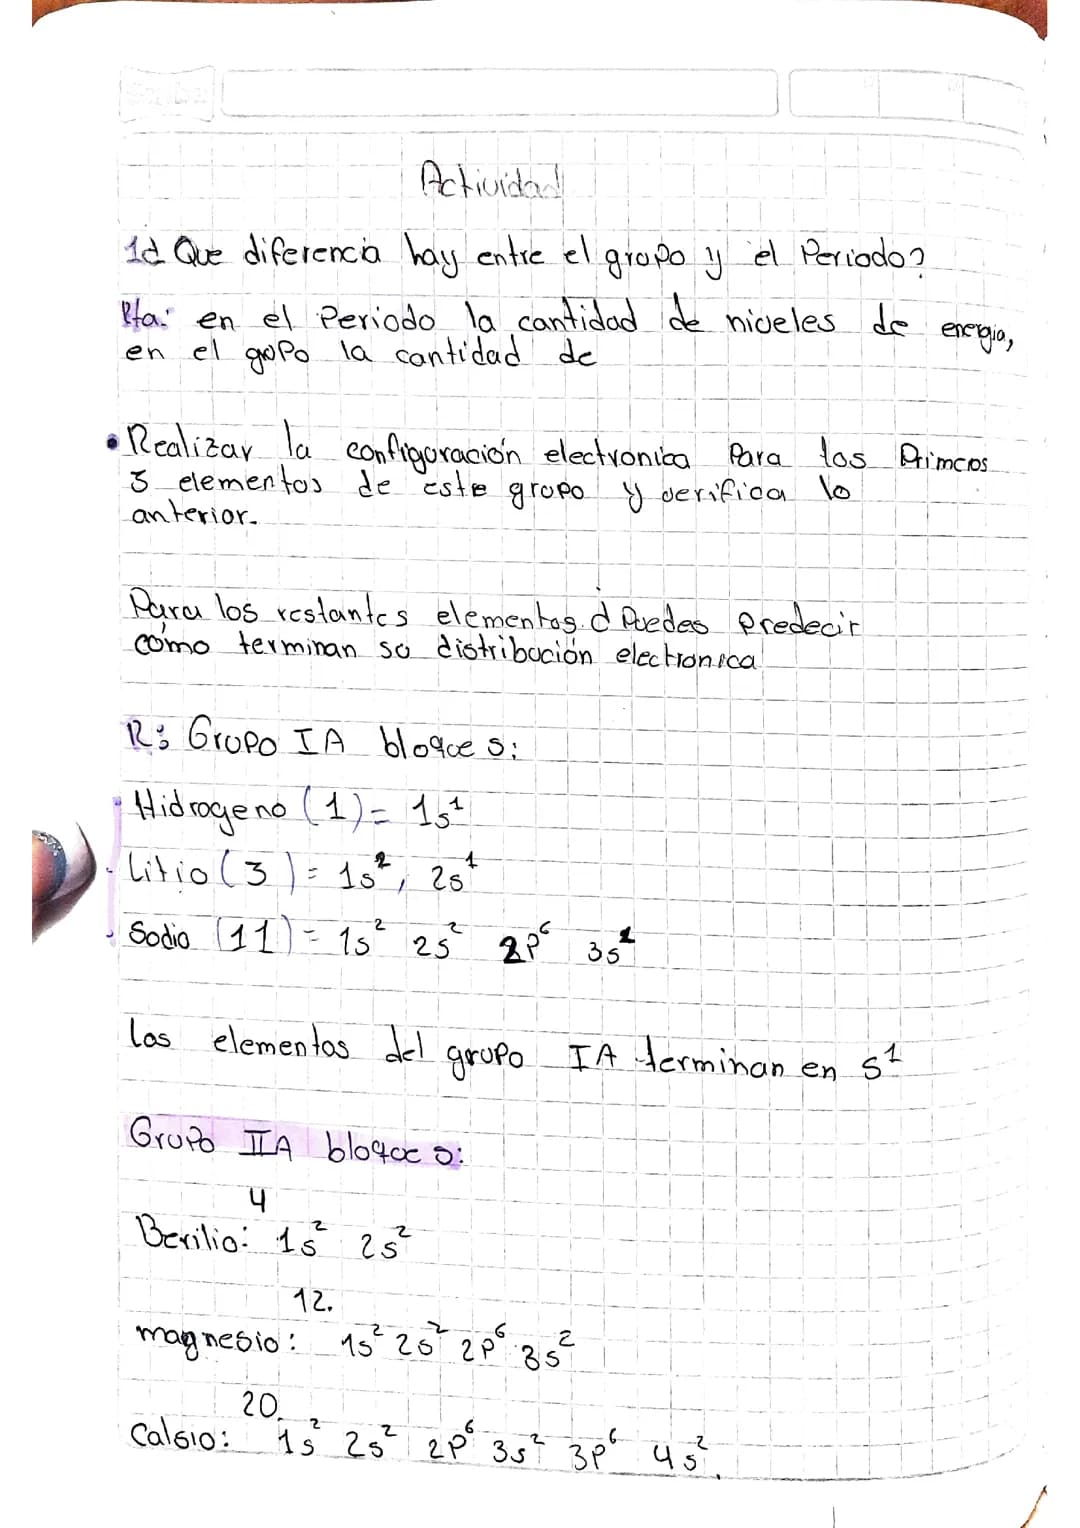 Actividad
1¿ Que diferencia hay entre el grupo y el Periodo?
Rta: en el Periodo la cantidad de niveles de energia,
en el grupo la cantidad de
• Realizar la configuración electronica Para los Primeros
3 elementos de este grupo y verifica lo
anterior.
Para los restantes elementos ¿ Puedes predecir
como terminan su distribución electronica
R: Grupo IA bloque s:
Hidrogeno (1) = 1s¹
Litio (3) = 1s², 2s¹
Sodio (11) = 1s² 2s² 2p⁶ 3s¹
Los elementos del grupo IA terminan en s¹
Grupo IIA bloque s:
4
Berilio: 1s² 2s²
12.
magnesio: 1s² 2s² 2p⁶ 3s²
20.
Calsio: 1s² 2s² 2p⁶ 3s² 3p⁶ 4s².